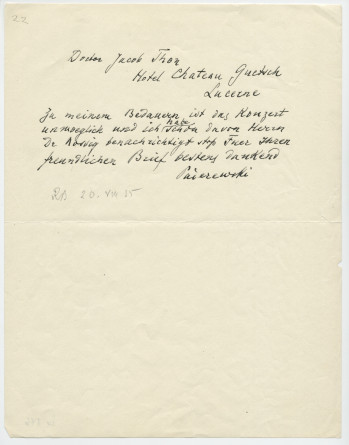 22
Doctor Jacob Thon
Hotel Chateau Guetsch
Lucerne
Zu meinem Bedauern ist das Konzert
unmoeglich und ich habe schon davon Herrn
Dr benachrichtigt stop Fuer Ihren
freundlichen Brief bestens dankend
Paderewski
20. VII 35